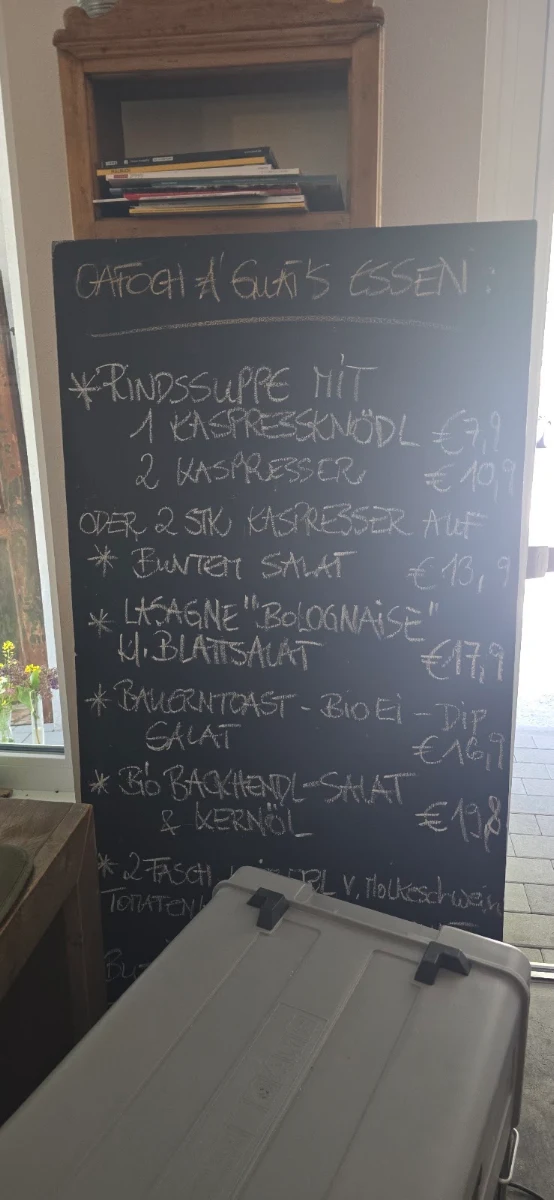 OAFOCH A' GUAT'S ESSEN:
* RINDSSUPPE MIT
1 KASPRESSKNÖDL €7,9
2 KASPRESSER €10,9
ODER 2 STK KASPRESSER AUF
* BUNTEM SALAT €13,9
* LASAGNE "BOLOGNAISE"
KL. BLATTSALAT €17,9
* BAUERNTOAST - BIO EI - DIP
SALAT €16,9
* BIO BACKHENDL-SALAT
& KERNÖL €19,8
* 2 FASCH V. Molkeschwein